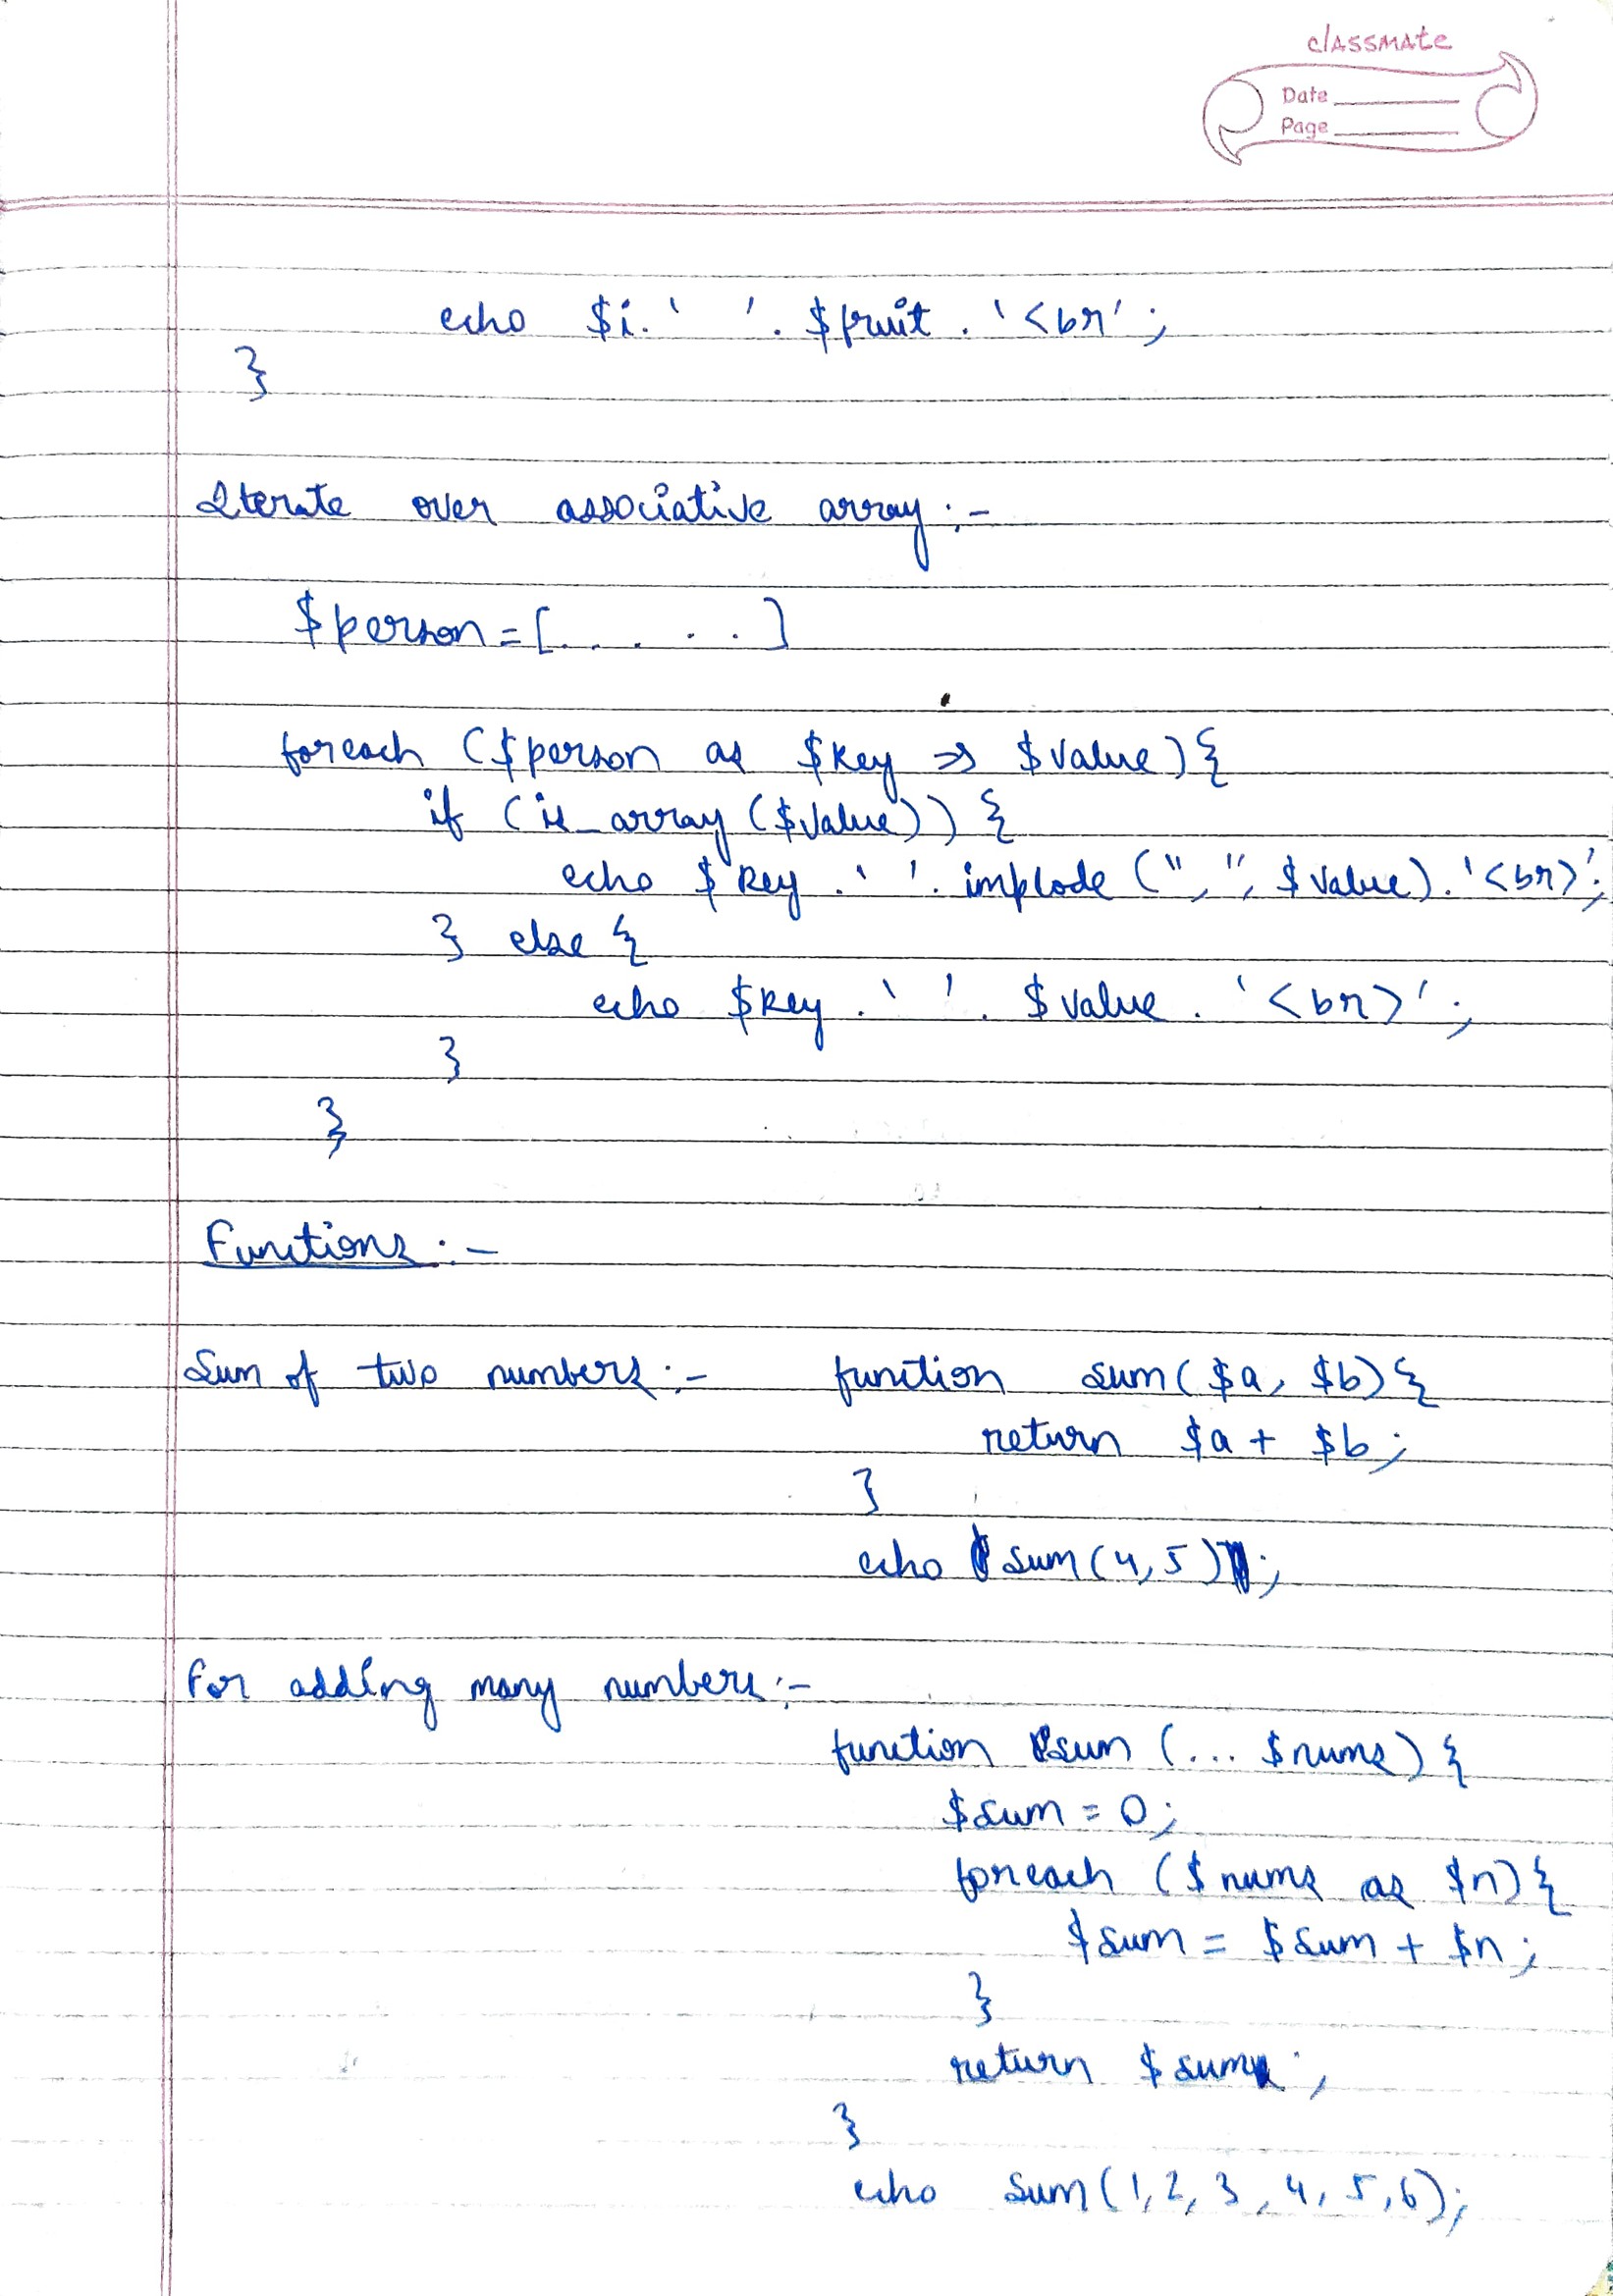 classmate
Date
Page
echo $i.' '. $fruit . '<br';
}
Iterate over associative array :-
$person=[. . . . .]
foreach ($person as $key => $value){
if (is_array ($value)) {
echo $key .' '. implode (",", $value).'<br>';
} else {
echo $key . ' ' . $value . '<br>';
}
}
Functions :-
Sum of two numbers :- function sum($a, $b){
return $a + $b;
}
echo sum(4,5);
For adding many numbers :-
function sum (... $nums) {
$sum = 0;
foreach ($nums as $n){
$sum = $sum + $n;
}
return $sum ;
}
echo sum(1,2,3,4,5,6);